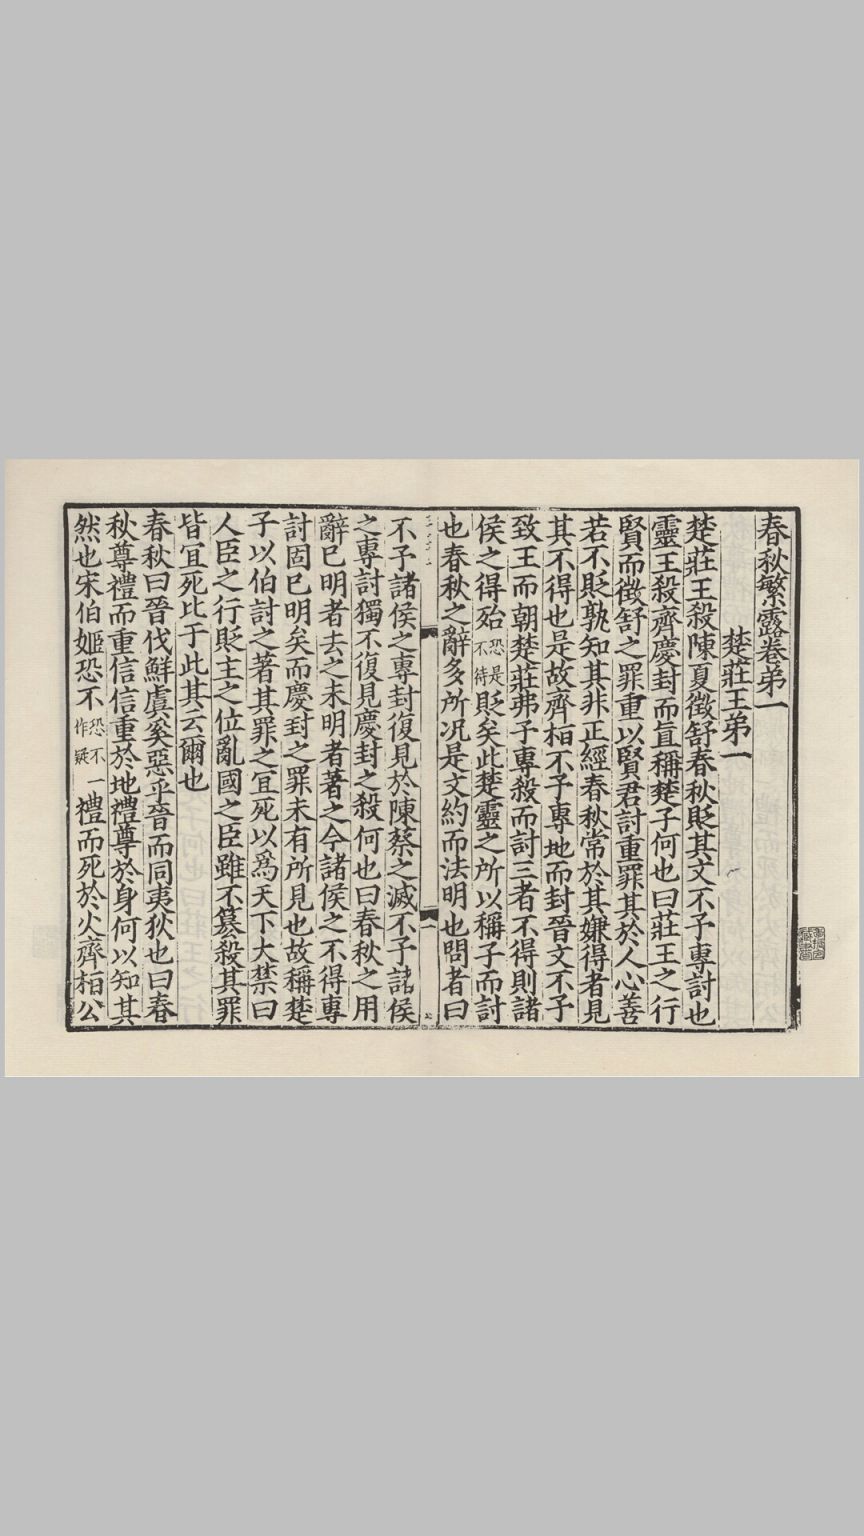 春秋繁露卷弟一
楚莊王弟一
楚莊王殺陳夏徵舒春秋貶其文不予專討也
靈王殺齊慶封而直稱楚子何也曰莊王之行
賢而徵舒之罪重以賢君討重罪其於人心善
若不貶孰知其非正經春秋常於其嫌得者見
其不得也是故齊桓不予專地而封晉文不予
致王而朝楚莊弗予專殺而討三者不得則諸
侯之得殆恐是不待貶矣此楚靈之所以稱子而討
也春秋之辭多所况是文約而法明也問者曰
不予諸侯之專封復見於陳蔡之滅不予諸侯
之專討獨不復見慶封之殺何也曰春秋之用
辭已明者去之未明者著之今諸侯之不得專
討固已明矣而慶封之罪未有所見也故稱楚
子以伯討之著其罪之宜死以爲天下大禁曰
人臣之行貶主之位亂國之臣雖不篡殺其罪
皆宜死比于此其云爾也
春秋曰晉伐鮮虞奚惡乎晉而同夷狄也曰春
秋尊禮而重信信重於地禮尊於身何以知其
然也宋伯姬恐不恐不作疑一禮而死於火齊桓公